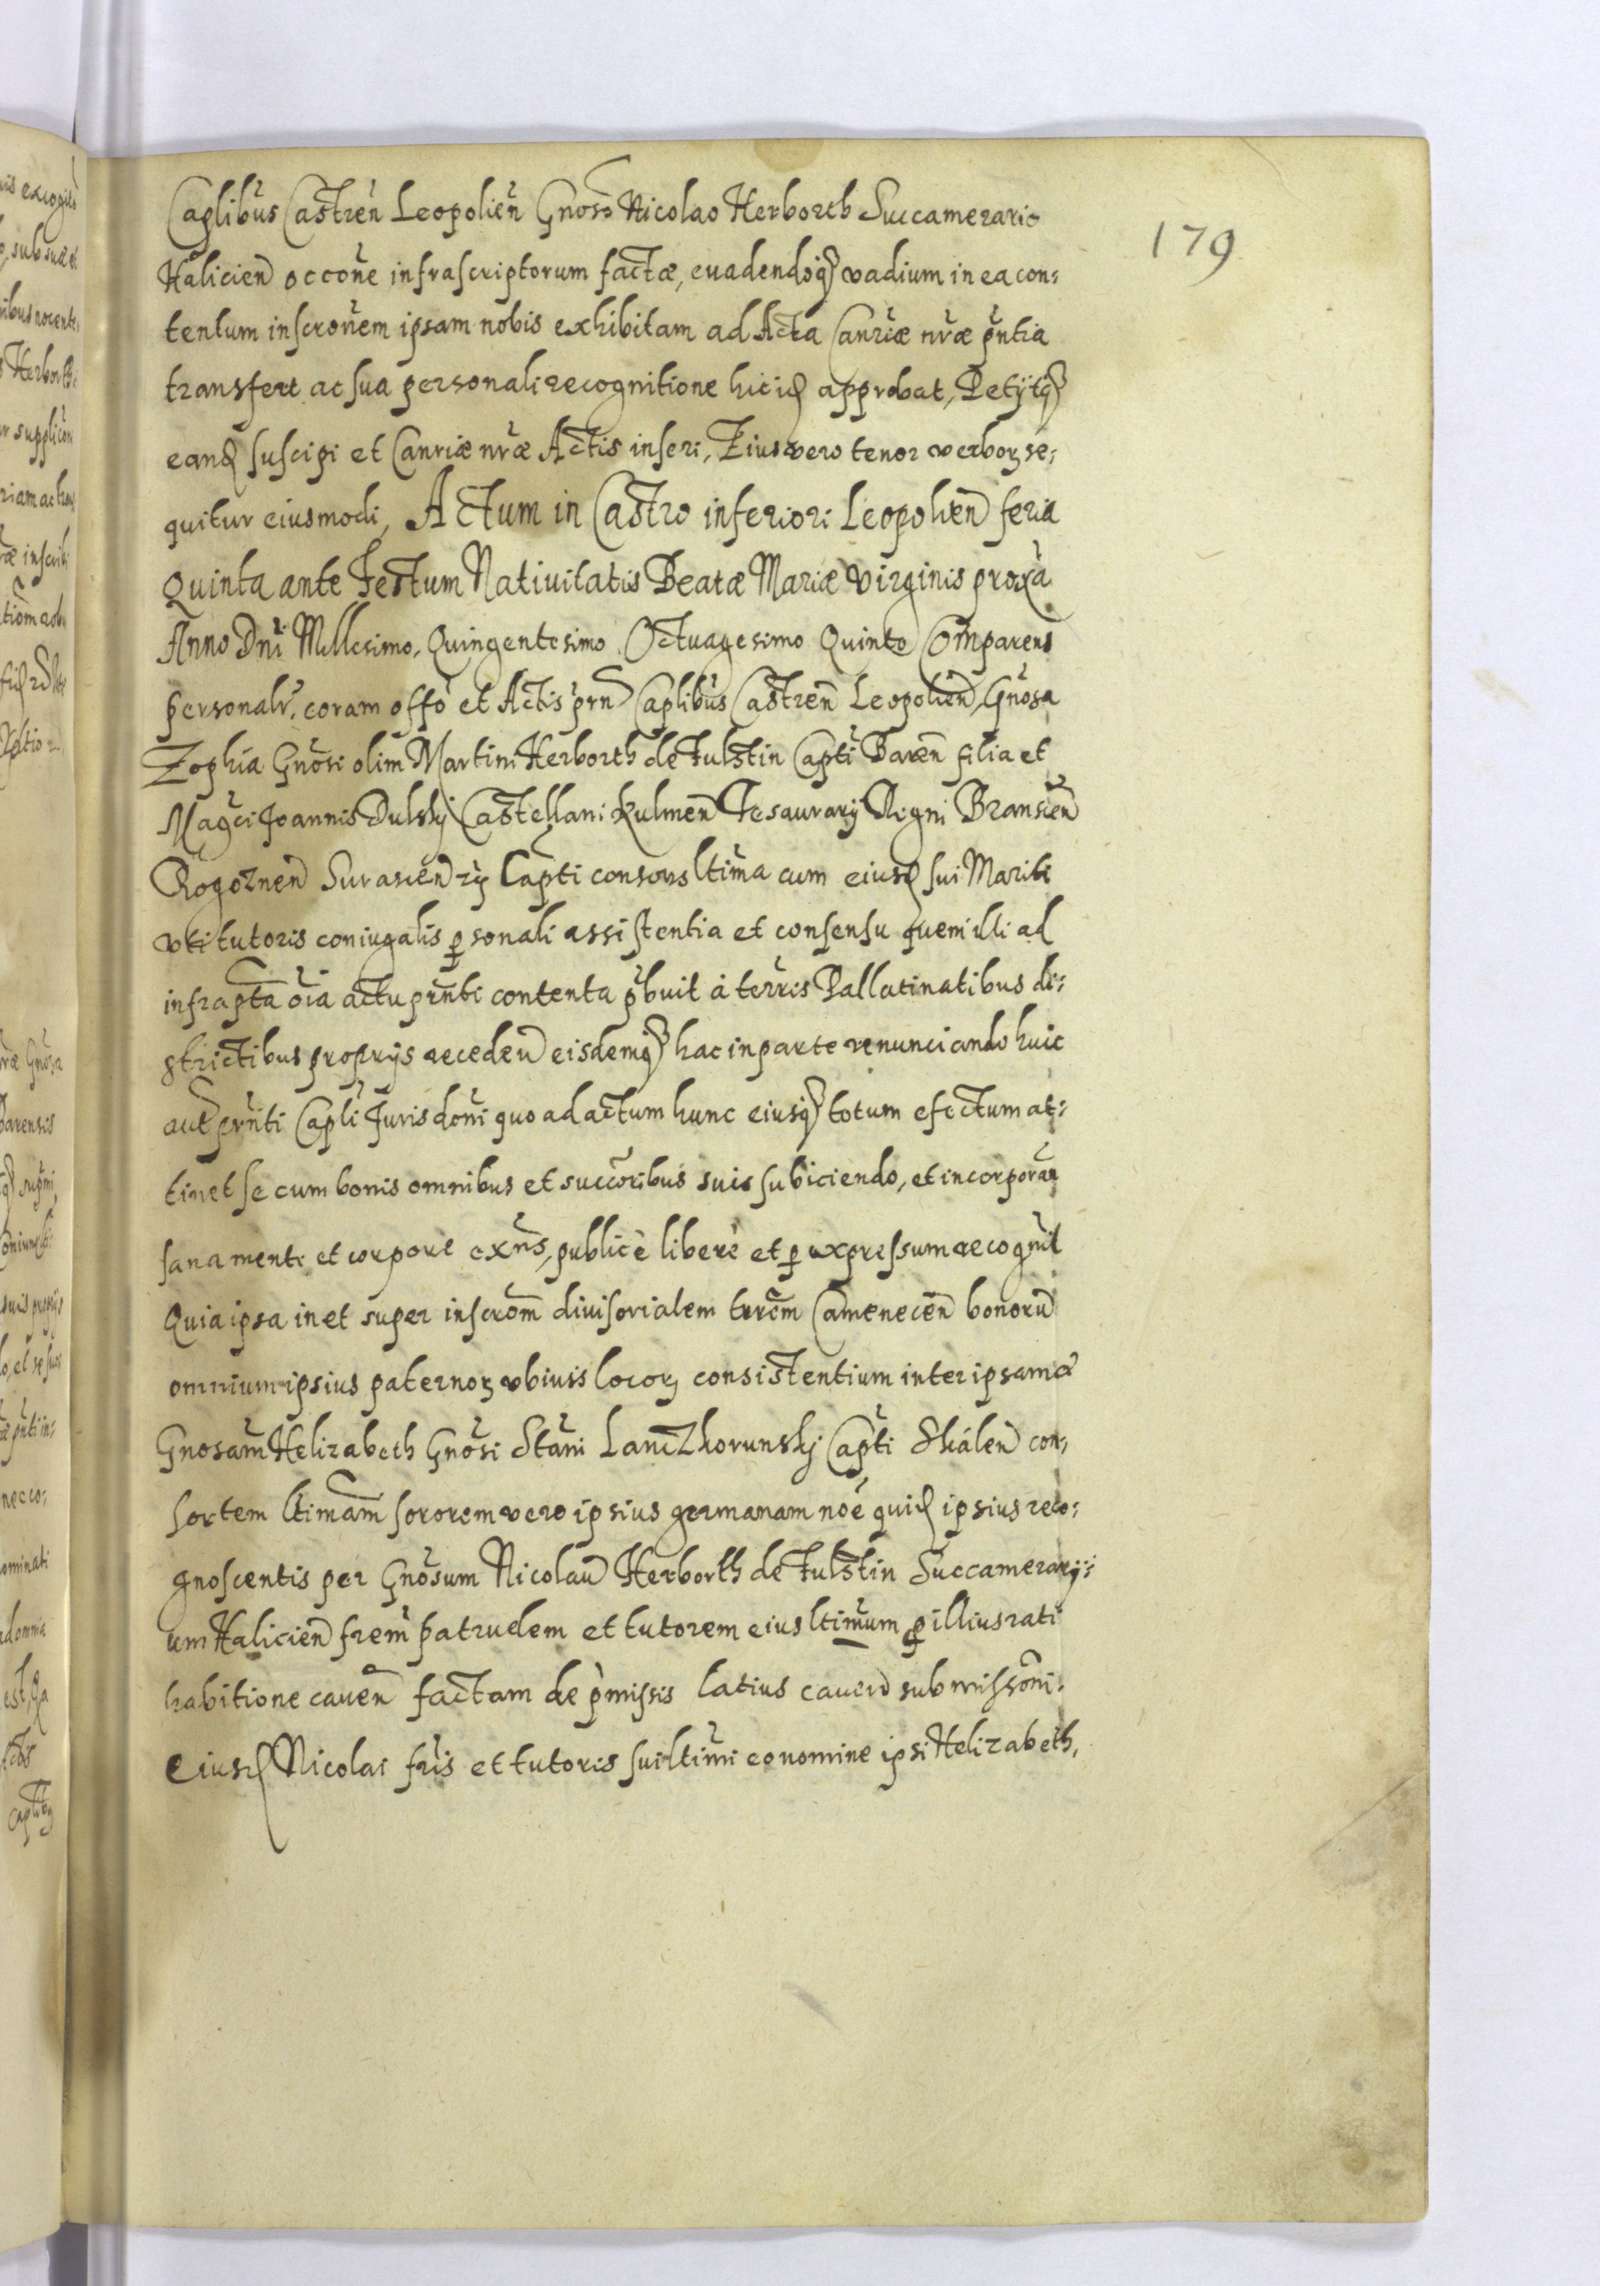 179
Caplibus Castren̄ Leopolien̄ Gnoso Nicolao Herborth Succamerario
Halicien̄ occōne infrascriptorum factæ, euadendoq̃ vadium in ea con:
tentum inscronem ipsam nobis exhibitam ad Acta Canriæ nr̃æ pñtia
transfert ac sua personali recognitione hic iꝗ approbat, Petijtq̃
eanꝗ suscipi et Canriæ nr̃æ Actis inseri, Eius vero tenor verboꝝ se:
quitur eiusmodi, Actum in Castro inferiori Leopolien̄ feria
Quinta ante Festum Natiuitatis Beatæ Mariæ Virginis proxã
Anno Dn̄i Millesimo, Quingentesimo Octuagesimo Quinto Comparens
personalr̃, coram offo et Actis prn̄ Caplibus Castren̄ Leopolien̄, Gnosa
Zophia Gnosi olim Martini Herborth de Fulstin Capti Baren̄ filia et
Magci Joannis Dulskj Castellani Kulmen̄ Tesaurarij Regni Bransien̄
Rogoznen̄ Surasien̄ ꝛꝯ Capti consors ltima cum eiusꝗ sui Mariti
vti tutoris coniugalis ꝑsonali assistentia et consensu quem illi ad
infrapta oĩa actu prñti contenta p̃buit à terris Pallatinatibus di:
strictibus proprijs receden̄ eisdemq̃ hac in parte renunciando huic
aut prñti Capli Jurisdoni quo ad actum hunc eiusq̃ totum efectum at:
tinet se cum bonis omnibus et succoribus suis subiciendo, et incorporan̄
sana mente et corpore exñs, publicè liberè et ꝑ expressum recognit
Quia ipsa in et super inscrom̄ diuisorialem trẽm Camenecen̄ bonoru̅
omnium ipsius paternoꝝ vbiuis locoꝝ consistentium inter ipsam et
Gnosam̄ Helizabeth Gnosi Stani Lanczkorunskj Capti Skálen̄ con:
sortem ltimam̄ sororem vero ipsius germanam noẽ quiꝗ ipsius reco:
gnoscentis per Gnosum Nicolau̅ Herborth de Fulstin Succamerarij:
um Halicien̄ frem̃ patruelem et tutorem eius ltimum ꝑ illius rati
habitione cauen̄ factam de p̃missis latius cauen̄ submissoni:
Eiusꝗ Nicolai fris et tutoris sui ltimi eo nomine ipsi Helizabeth,